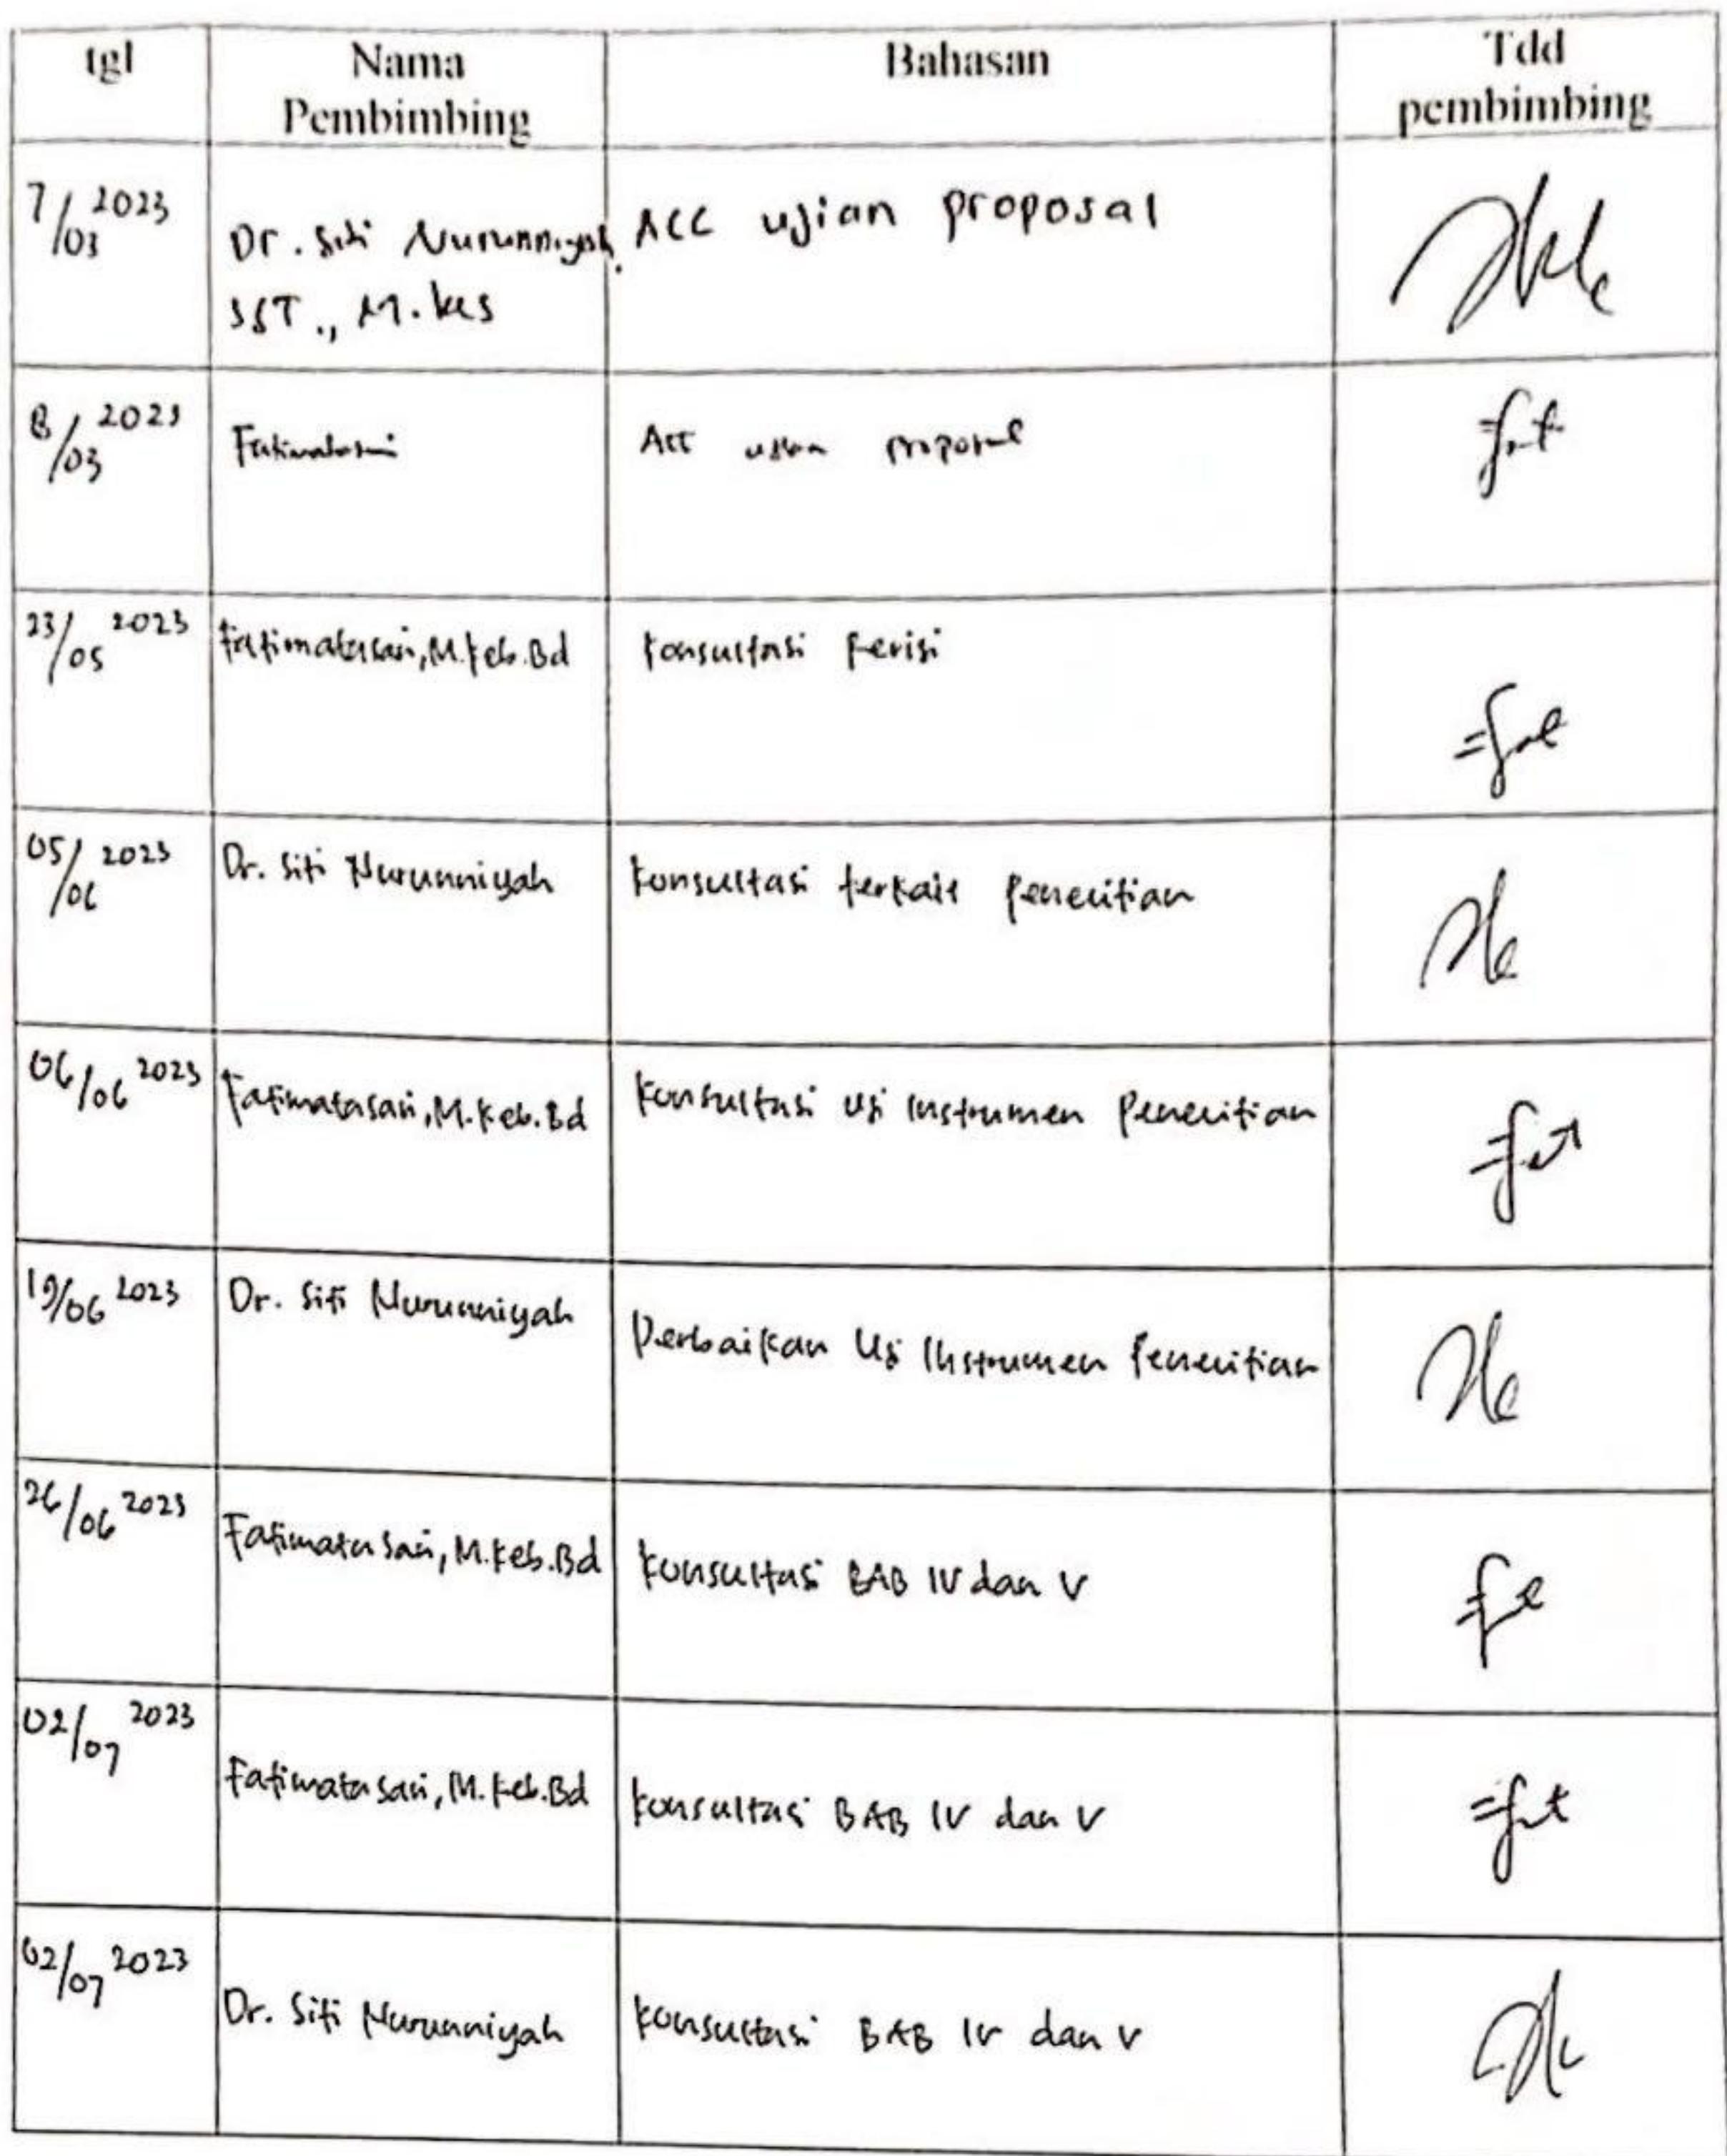 tgl Nama Pembimbing Bahasan Tdd pembimbing
7/03 2023 Dr. Siti Nurunniyah, SST., M.kes ACC ujian proposal
8/03 2023 Fatimatasari Acc ujian proposal
23/05 2023 Fatimatasari, M.Keb.Bd Konsultasi Revisi
05/06 2023 Dr. Siti Nurunniyah Konsultasi terkait Penelitian
06/06 2023 Fatimatasari, M.Keb.Bd Konsultasi Uji Instrumen Penelitian
19/06 2023 Dr. Siti Nurunniyah Perbaikan Uji Instrumen Penelitian
26/06 2023 Fatimatasari, M.Keb.Bd Konsultasi BAB IV dan V
02/07 2023 Fatimatasari, M.Keb.Bd Konsultasi BAB IV dan V
02/07 2023 Dr. Siti Nurunniyah Konsultasi BAB IV dan V